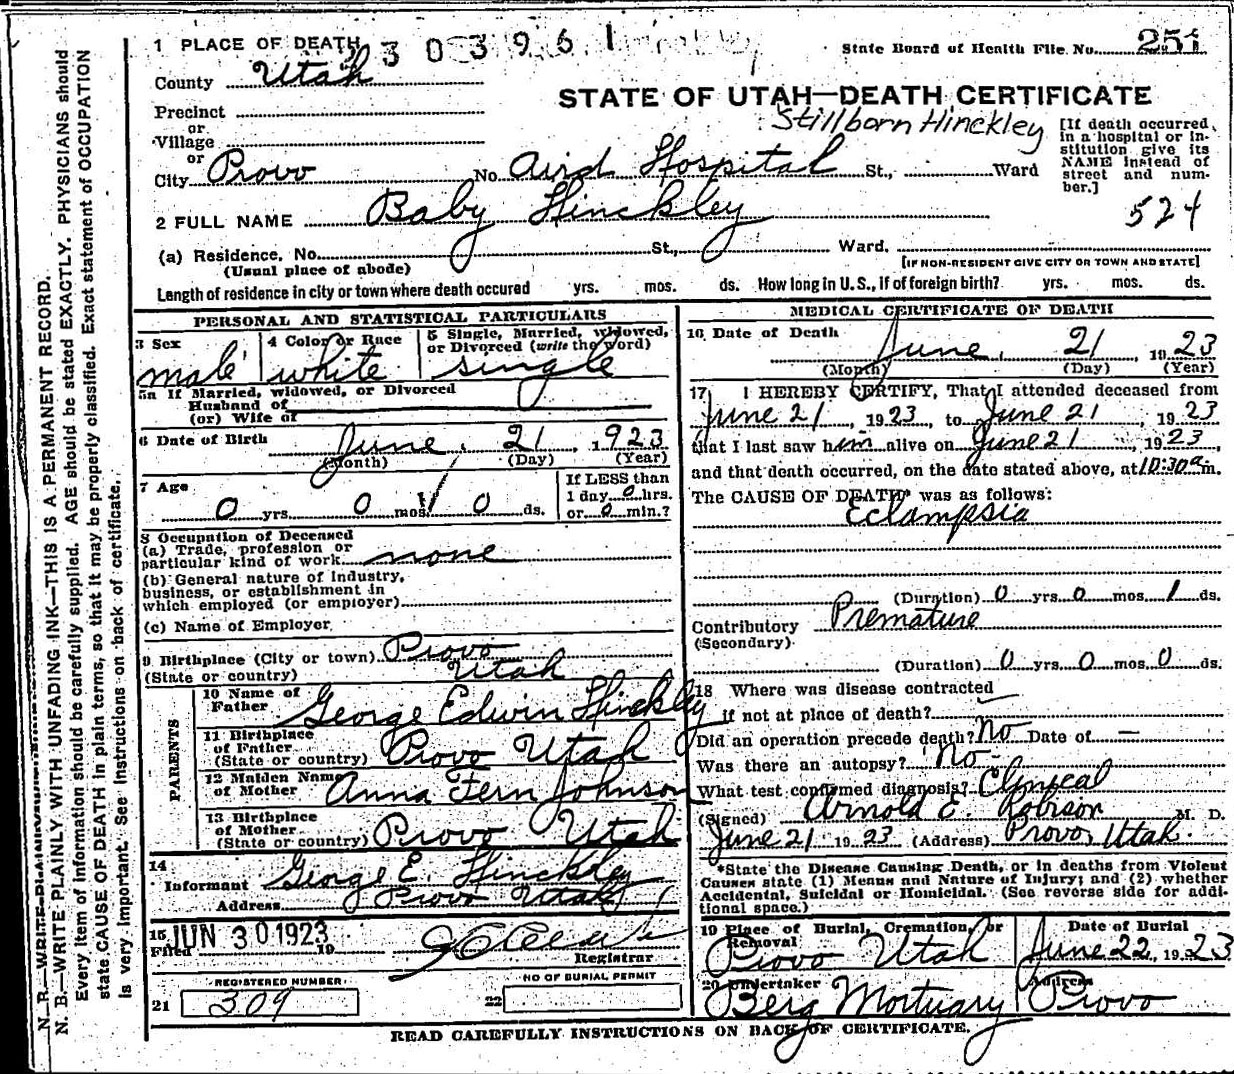 1 PLACE OF DEATH
State Board of Health File No. 251
County Utah
STATE OF UTAH—DEATH CERTIFICATE
Precinct
Stillborn Hinckley
or
Village
or
City Provo No. Aird Hospital St., Ward
[If death occurred
in a hospital or in-
stitution give its
NAME instead of
street and num-
ber.]
2 FULL NAME Baby Hinckley
524
(a) Residence. No. St., Ward.
(Usual place of abode)
[IF NON-RESIDENT GIVE CITY OR TOWN AND STATE]
Length of residence in city or town where death occured yrs. mos. ds. How long in U. S., if of foreign birth? yrs. mos. ds.
PERSONAL AND STATISTICAL PARTICULARS
3 Sex
male
4 Color or Race
white
5 Single, Married, widowed,
or Divorced (write the word)
single
5a If Married, widowed, or Divorced
Husband of
(or) Wife of
6 Date of Birth June 21 1923
(Month) (Day) (Year)
7 Age
0 yrs. 0 mos. 0 ds.
If LESS than
1 day 0 hrs.
or 0 min.?
8 Occupation of Deceased
(a) Trade, profession or
particular kind of work none
(b) General nature of industry,
business, or establishment in
which employed (or employer)
(c) Name of Employer
9 Birthplace (City or town) Provo
(State or country) Utah
PARENTS
10 Name of
Father George Edwin Hinckley
11 Birthplace
of Father
(State or country) Provo Utah
12 Maiden Name
of Mother Anna Fern Johnson
13 Birthplace
of Mother
(State or country) Provo Utah
14
Informant George E. Hinckley
Address Provo Utah
15
Filed JUN 30 1923 19
Registrar
REGISTERED NUMBER
21 309
NO OF BURIAL PERMIT
22
MEDICAL CERTIFICATE OF DEATH
16 Date of Death
June 21, 1923
(Month) (Day) (Year)
17 I HEREBY CERTIFY, That I attended deceased from
June 21, 1923, to June 21, 1923
that I last saw him alive on June 21, 1923,
and that death occurred, on the date stated above, at 10:30 a m.
The CAUSE OF DEATH* was as follows:
Eclampsia
(Duration) 0 yrs. 0 mos. 1 ds.
Contributory Premature
(Secondary)
(Duration) 0 yrs. 0 mos. 0 ds.
18 Where was disease contracted
if not at place of death?
Did an operation precede death? No Date of —
Was there an autopsy? No
What test confirmed diagnosis? Clinical
(Signed) Arnold E. Robison M. D.
June 21 1923 (Address) Provo, Utah.
*State the Disease Causing Death, or in deaths from Violent
Causes state (1) Means and Nature of Injury; and (2) whether
Accidental, Suicidal or Homicidal. (See reverse side for addi-
tional space.)
19 Place of Burial, Cremation, or
Removal
Provo Utah
Date of Burial
June 22, 1923
20 Undertaker
Berg Mortuary
Address
Provo
READ CAREFULLY INSTRUCTIONS ON BACK OF CERTIFICATE.
N. B.—WRITE PLAINLY WITH UNFADING INK—THIS IS A PERMANENT RECORD.
Every item of information should be carefully supplied. AGE should be stated EXACTLY. PHYSICIANS should
state CAUSE OF DEATH in plain terms, so that it may be properly classified. Exact statement of OCCUPATION
is very important. See instructions on back of certificate.